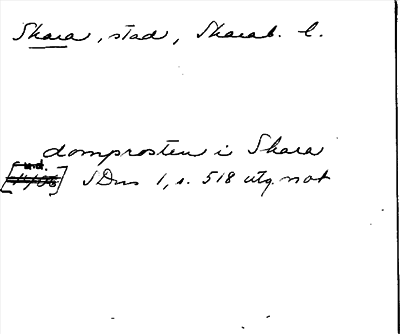 Skara, stad, Skarab. l.
domprosten i Skara
[u.d.] SDns 1, s. 518 utg. not